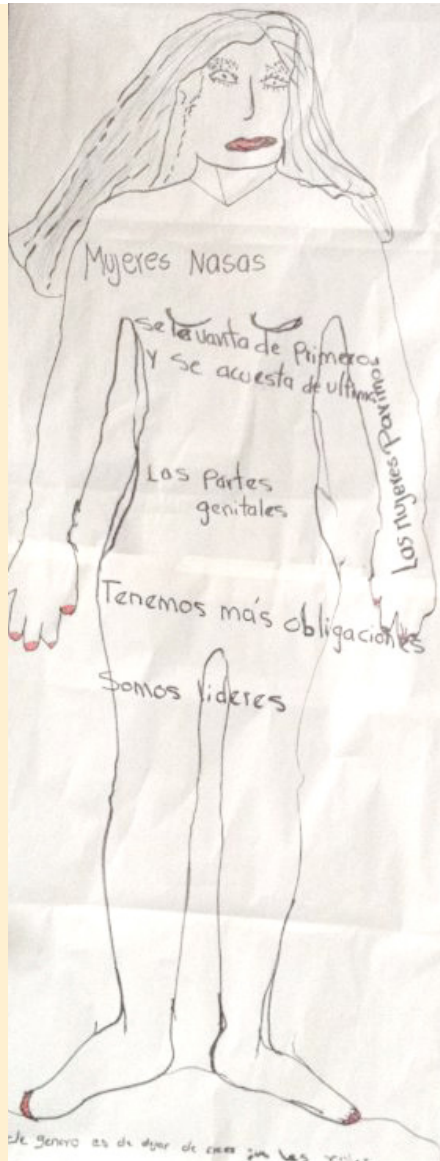 Mujeres Nasas
se levanta de Primeros
y se acuesta de ultimos
Las mujeres Parimos
Las Partes
genitales
Tenemos más obligaciones
Somos lideres
de genero es de dejar de